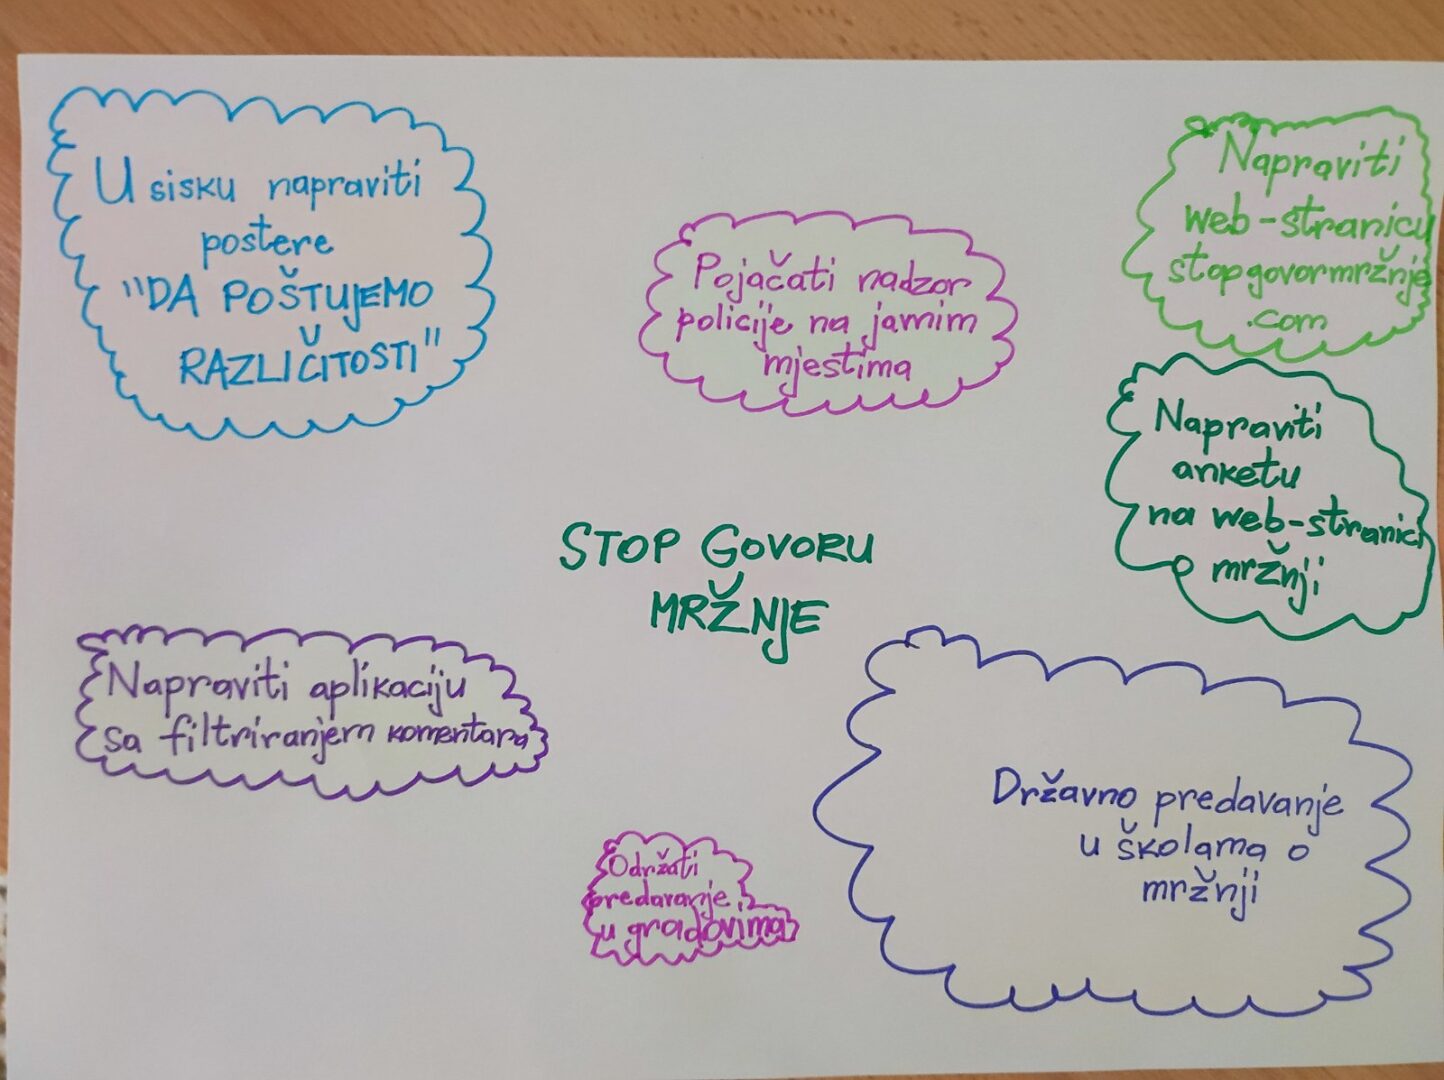 U sisku napraviti
postere
"DA POŠTUJEMO
RAZLIČITOSTI"
Pojačati nadzor
policije na javnim
mjestima
Napraviti
web-stranicu
stopgovormržnje
.com
Napraviti
anketu
na web-stranici
o mržnji
STOP GOVORU
MRŽNJE
Napraviti aplikaciju
sa filtriranjem komentara
Održati
predavanje
u gradovima
Državno predavanje
u školama o
mržnji